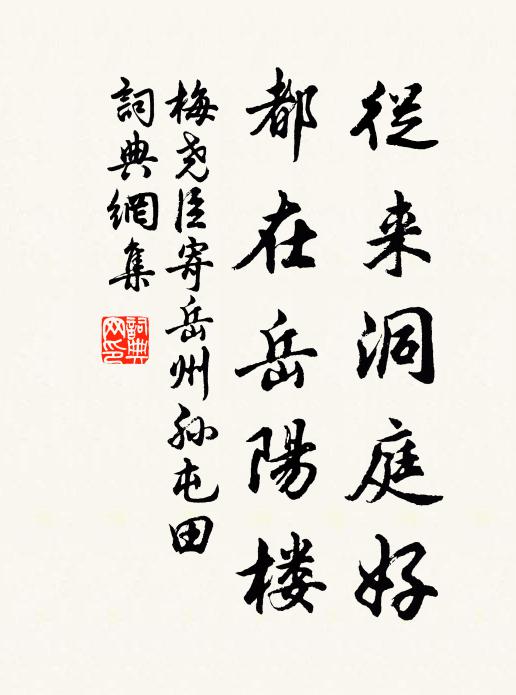 從来洞庭好
都在岳陽楼
梅尧臣寄岳州孙屯田
詞典網集
詞典网印